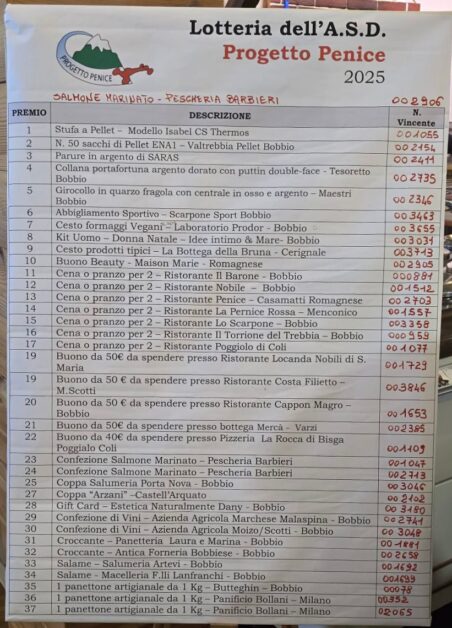 Lotteria dell'A.S.D.
Progetto Penice
2025
PROGETTO PENICE
SALMONE MARINATO - PESCHERIA BARBIERI 002906
PREMIO DESCRIZIONE N. Vincente
1 Stufa a Pellet – Modello Isabel CS Thermos 001055
2 N. 50 sacchi di Pellet ENA1 – Valtrebbia Pellet Bobbio 002154
3 Parure in argento di SARAS 002411
4 Collana portafortuna argento dorato con puttin double-face - Tesoretto
Bobbio 002735
5 Girocollo in quarzo fragola con centrale in osso e argento – Maestri
Bobbio 002346
6 Abbigliamento Sportivo – Scarpone Sport Bobbio 003463
7 Cesto formaggi Vegani – Laboratorio Prodor - Bobbio 003655
8 Kit Uomo – Donna Natale – Idee intimo & Mare- Bobbio 003031
9 Cesto prodotti tipici – La Bottega della Bruna - Cerignale 003713
10 Buono Beauty - Maison Marie - Romagnese 002905
11 Cena o pranzo per 2 – Ristorante Il Barone - Bobbio 000881
12 Cena o pranzo per 2 – Ristorante Nobile – Bobbio 001512
13 Cena o pranzo per 2 – Ristorante Penice – Casamatti Romagnese 002703
14 Cena o pranzo per 2 – Ristorante La Pernice Rossa – Menconico 001557
15 Cena o pranzo per 2 – Ristorante Lo Scarpone – Bobbio 003358
16 Cena o pranzo per 2 – Ristorante Il Torrione del Trebbia – Bobbio 000959
17 Cena o pranzo per 2 – Ristorante Poggiolo di Coli 001077
19 Buono da 50€ da spendere presso Ristorante Locanda Nobili di S.
Maria 001729
19 Buono da 50 € da spendere presso Ristorante Costa Filietto –
M.Scotti 003846
20 Buono da 50 € da spendere presso Ristorante Cappon Magro –
Bobbio 001653
21 Buono da 50€ da spendere presso bottega Mercà - Varzi 002385
22 Buono da 40€ da spendere presso Pizzeria La Rocca di Bisga
Poggialo Coli 001109
23 Confezione Salmone Marinato – Pescheria Barbieri 001047
24 Confezione Salmone Marinato – Pescheria Barbieri 002713
25 Coppa Salumeria Porta Nova - Bobbio 003046
27 Coppa “Arzani” –Castell'Arquato 002102
28 Gift Card – Estetica Naturalmente Dany - Bobbio 003180
29 Confezione di Vini – Azienda Agricola Marchese Malaspina - Bobbio 002741
30 Confezione di Vini – Azienda Agricola Moizo/Scotti - Bobbio 003048
31 Croccante – Panetteria Laura e Marina - Bobbio 001881
32 Croccante - Antica Forneria Bobbiese - Bobbio 002658
33 Salame – Salumeria Artevi - Bobbio 001692
34 Salame - Macelleria F.lli Lanfranchi - Bobbio 001699
35 1 panettone artigianale da 1 Kg – Butteghin – Bobbio 00078
36 1 panettone artigianale da 1 Kg - Panificio Bollani – Milano 00352
37 1 panettone artigianale da 1 Kg - Panificio Bollani - Milano 02065